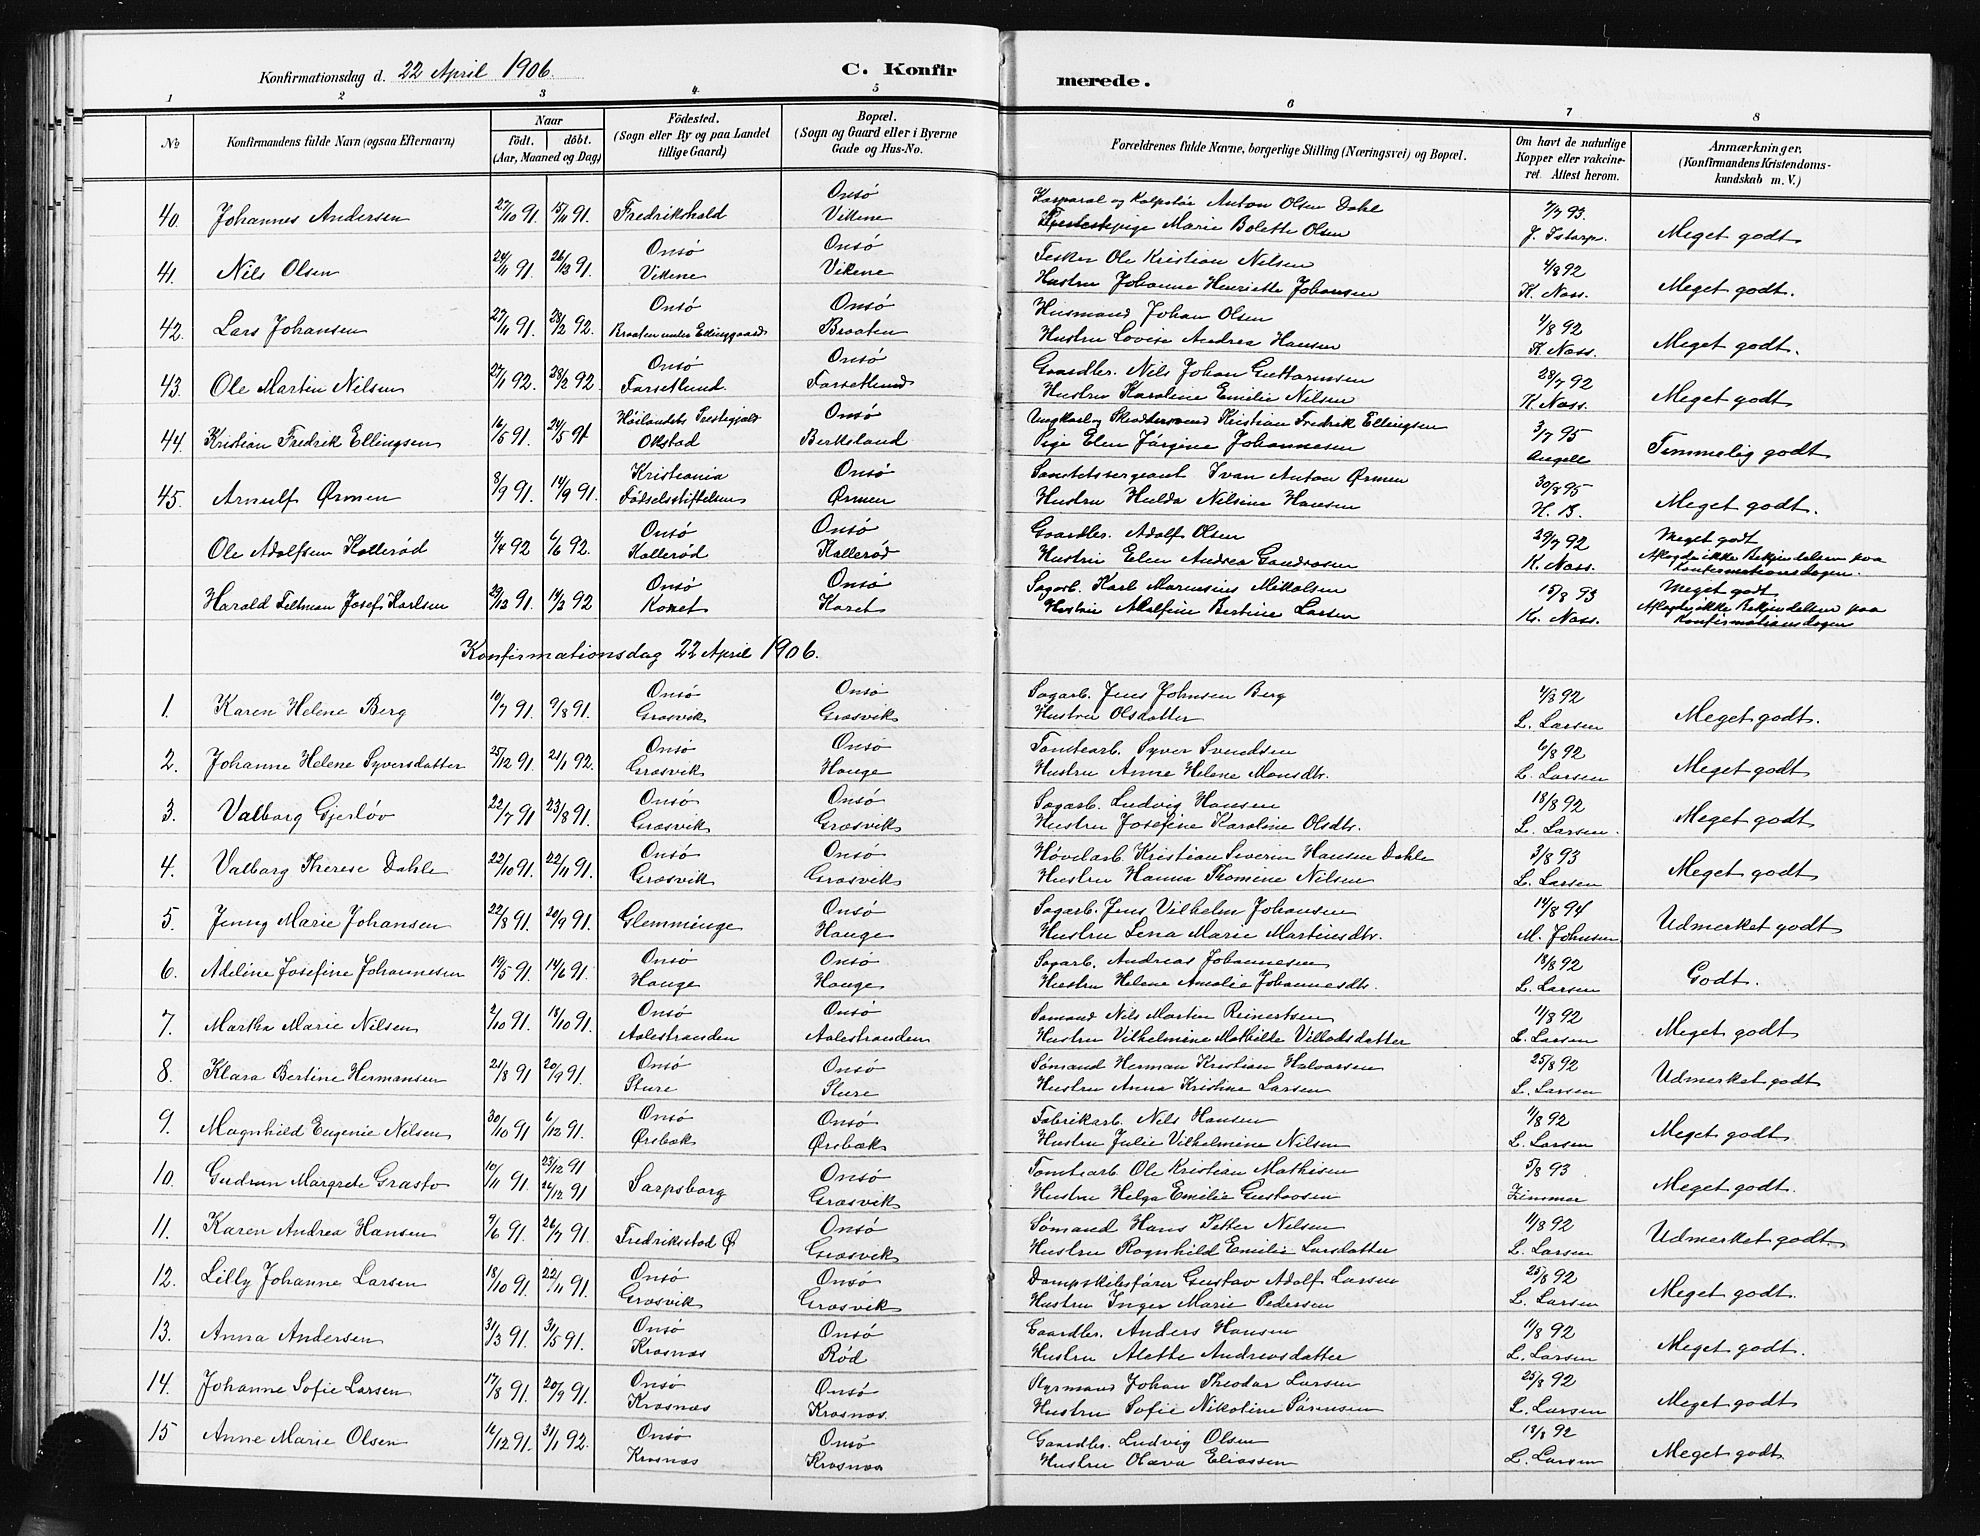 Konfirmationsdag d. 22 April 1906. C. Konfirmerede.
1 2 3 4 5 6 7 8
No Konfirmandens fulde Navn (ogsaa Efternavn) Naar födt. döbt. (Aar, Maaned og Dag) Födested. (Sogn eller By og paa Landet tillige Gaard) Bopæl. (Sogn og Gaard eller i Byerne Gade og Hus-No. Forældrenes fulde Navne, borgerlige Stilling (Næringsvei) og Bopæl. Om havt de naturlige Kopper eller vakcineret. Attest herom. Anmærkninger. (Konfirmandens Kristendomskundskab m. V.)
40. Johannes Andersen 27/10 91. 15/11 91. Fredrikshald Onsö Vikene Korporal og Anton Olsen Dahl
Marie Bolette Olsen 7/7 93. J. Istorp. Meget godt.
41. Nils Olsen 24/11 91. 26/12 91. Onsö Vikene Onsö Vikene Fisker Ole Kristian Nilsen
Hustru Johanne Henriette Johansen 4/8 92 K. Nass. Meget godt.
42. Lars Johansen 27/11 91. 28/2 92. Onsö Braaten under Ellinggaard Onsö Braaten Husmand Johan Olsen
Hustru Lovise Andrea Hansen 4/8 92 K. Nass. Meget godt.
43. Ole Martin Nilsen 27/1 92. 28/2 92. Onsö Farsetlund Onsö Farsetlund Gaardbr. Nils Johan Guttormsen
Hustru Karoline Emilie Nilsen 28/7 92 K. Nass. Meget godt
44. Kristian Fredrik Ellingsen 16/5 91. 24/5 91 Höilandets Prestegjæld Okstad Onsö Berkeland Ungkarl og Skræddersvend Kristian Fredrik Ellingsen
Pige Elen Jörgine Johannesen 3/7 95 Angell Temmelig godt
45. Arnulf Ørmen 8/9 91. 14/9 91. Kristiania Födselsstiftelsen Onsö Ørmen Sanitetssergeant Ivan Anton Ørmen
Hustru Hulda Nilsine Hansen 30/8 95 H. B. Meget godt.
Ole Adolfsen Kallerød 4/4 92 6/6 92. Onsö Kallerød Onsö Kallerød Gaardbr. Adolf Olsen
Hustru Elen Andrea Gundrosen 29/7 92 K. Nass. Meget godt Aflagde ikke Bekjendelsen paa Konfirmationsdagen.
Harald Feltman Josef Karlsen 29/12 91. 14/2 92 Onsö Koret Onsö Koret Sagarb. Karl Marensius Mikalsen
Hustru Adolfine Bertine Larsen 15/8 93 K. Nass. Meget godt Aflagde ikke Bekjendelsen paa Konfirmationsdagen
Konfirmationsdag 22 April 1906.
1. Karen Helene Berg 10/7 91. 9/8 91. Onsö Græsvik Onsö Græsvik Sagarb. Jens Johnsen Berg
Hustru Olsdatter 4/8 92 L. Larsen Meget godt.
2. Johanne Helene Syversdatter 25/12 91. 21/1 92. Onsö Græsvik Onsö Hauge Tomtearb. Syver Svendsen
Hustru Anne Helene Monsdtr. 6/8 92 L. Larsen Meget godt
3. Valborg Gjerløv 22/7 91 23/8 91. Onsö Græsvik Onsö Græsvik Sagarb. Ludvig Hansen
Hustru Josefine Karoline Olsdtr. 18/8 92 L. Larsen. Meget godt
4. Valborg Therese Dahle 22/10 91. 22/11 91. Onsö Græsvik Onsö Græsvik Høvelarb. Kristian Severin Hansen Dahle
Hustru Hanna Thomine Nilsen 3/8 93 L. Larsen Meget godt
5. Jenny Marie Johansen 22/8 91. 20/9 91. Glemminge Onsö Hauge Sagarb. Jens Vilhelm Johansen
Hustru Lena Marie Martinsdtr. 14/8 94 M. Johnsen Udmerket godt
6. Adeline Josefine Johannesen 19/5 91. 14/6 91. Onsö Hauge Onsö Hauge Sagarb. Andreas Johannesen
Hustru Helene Amalie Johannesdtr. 18/8 92 L. Larsen Godt.
7. Martha Marie Nilsen 2/10 91. 18/10 91. Onsö Aalestranden Onsö Aalestranden Sømand Nils Martin Reinertsen
Hustru Vilhelmine Mathilde Villadsdatter 11/8 92 L. Larsen Meget godt
8. Klara Bertine Hermansen 21/8 91 20/9 91. Onsö Sture Onsö Sture Sømand Herman Kristian Halvorsen
Hustru Anna Kristine Larsen 25/8 92 L. Larsen Udmerket godt
9. Magnhild Eugenie Nilsen 30/10 91 6/12 91. Onsö Ørsbæk Onsö Ørsbæk Fabrikarb. Nils Hansen
Hustru Julie Vilhelmine Nilsen 11/8 92 L. Larsen Meget godt
10. Gudrun Margrete Græsto 10/11 91. 23/12 91 26/12 91 Sarpsborg Onsö Græsvik Tomtearb. Ole Kristian Mathisen
Hustru Helga Emilie Gustavsen 5/8 93 Zimmer Meget godt.
11. Karen Andrea Hansen 9/6 91. 26/7 91. Fredriksstad Ø Onsö Græsvik Sømand Hans Petter Nilsen
Hustru Ragnhild Emilie Larsdatter 11/8 92 L. Larsen Udmerket godt.
12. Lilly Johanne Larsen 18/10 91. 22/11 91. Onsö Græsvik Onsö Græsvik Dampskibsfører Gustav Adolf Larsen
Hustru Inger Marie Pedersen 25/8 92 L. Larsen Meget godt.
13. Anna Andersen 31/3 91. 31/5 91. Onsö Krosnæs Onsö Rød Gaardbr. Anders Hansen
Hustru Alette Andreasdatter 11/8 92 L. Larsen Meget godt.
14. Johanne Sofie Larsen 17/8 91. 20/9 91. Onsö Krosnæs Onsö Krosnæs Styrmand Johan Theodor Larsen
Hustru Sofie Nikoline Sørensen 25/8 92 L. Larsen Meget godt
15 Anne Marie Olsen 16/12 91. 31/1 92. Onsö Krosnæs Onsö Krosnæs Gaardbr. Ludvig Olsen
Hustru Olava Eliassen 18/8 92 L. Larsen Meget godt